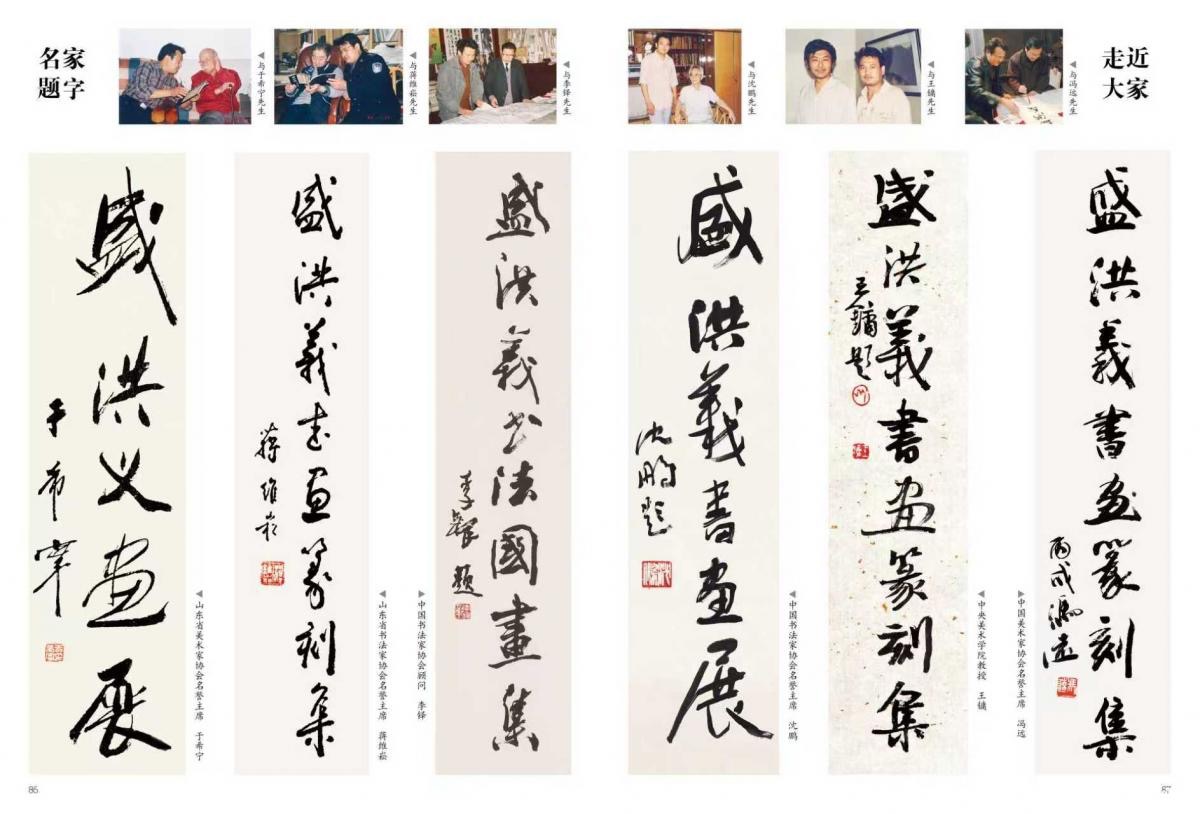 名家
题字
◀与于希宁先生
◀与蒋维崧先生
◀与李铎先生
◀与沈鹏先生
◀与王镛先生
◀与冯远先生
走近
大家
盛洪义画展
于希宁
◀山东省美术家协会名誉主席 于希宁
盛洪義书画篆刻集
蒋维崧
◀山东省书法家协会名誉主席 蒋维崧
盛洪義书法國畫集
李鐸題
▶中国书法家协会顾问 李铎
盛洪義書畫展
沈鹏题
◀中国书法家协会名誉主席 沈鹏
盛洪義書画篆刻集
王鏞题
◀中央美术学院教授 王镛
盛洪義書画篆刻集
丙戌馮远
▶中国美术家协会名誉主席 冯远
86
87